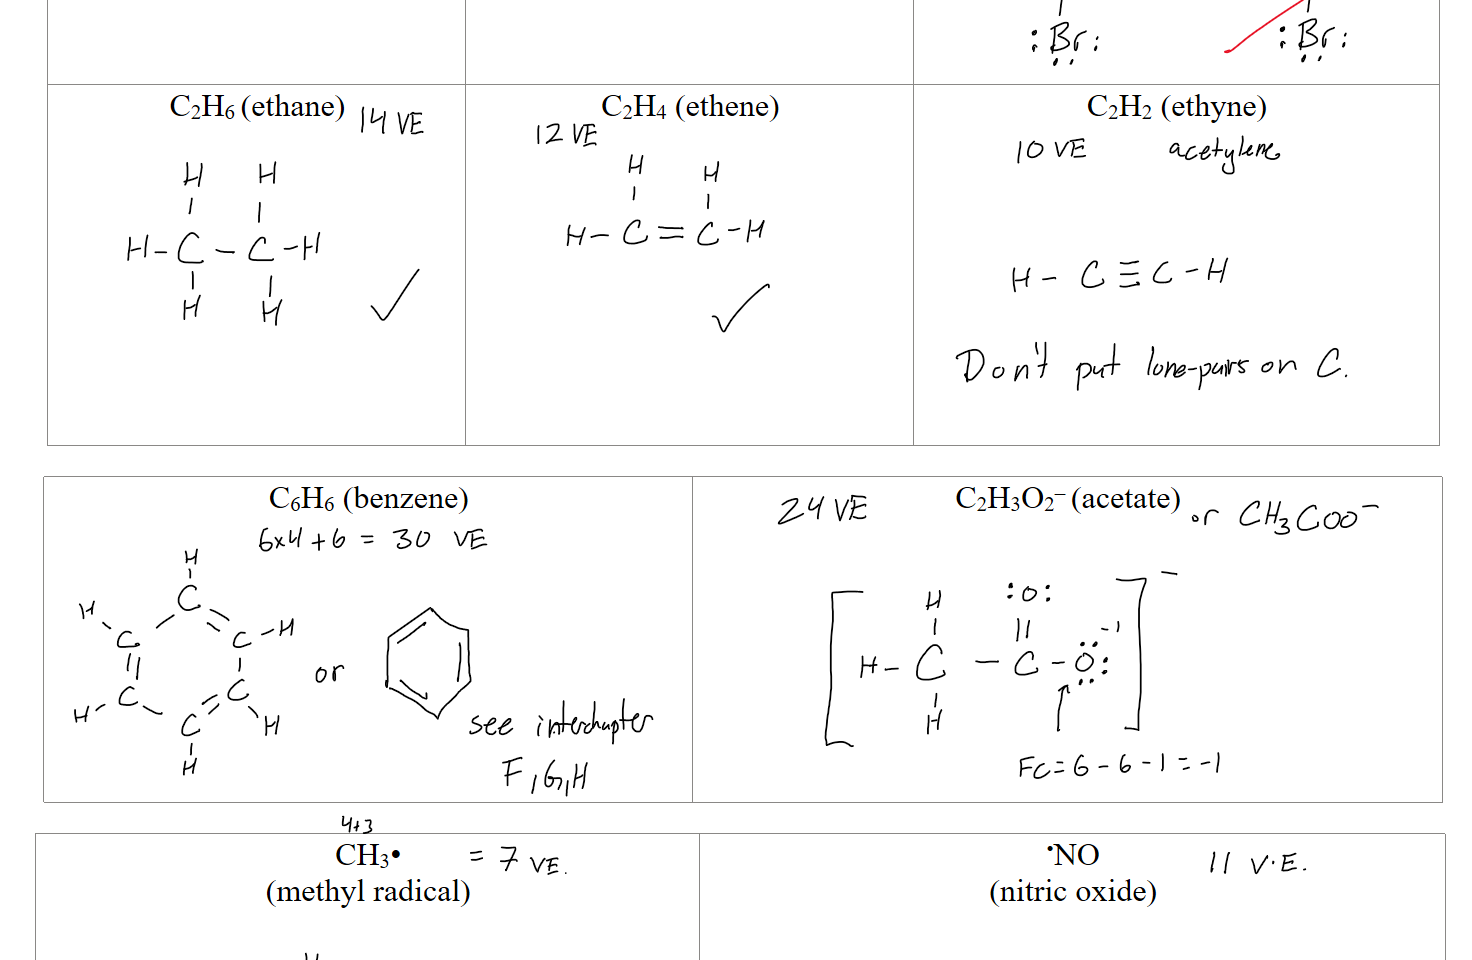 :Br: :Br:
C₂H₆ (ethane) 14 VE
H H
H-C-C-H
H H
C₂H₄ (ethene)
12 VE
H H
H-C=C-H
C₂H₂ (ethyne)
10 VE acetylene
H-C≡C-H
Don't put lone-pairs on C.
C₆H₆ (benzene)
6x4+6 = 30 VE
H
C
H C C-H
or
H-C C H
C
H
see interchapter
F,G,H
24 VE C₂H₃O₂⁻ (acetate) or CH₃COO⁻
H :O: -
H-C-C-O: -1
H
FC=6-6-1=-1
4+3
CH₃• = 7 VE.
(methyl radical)
•NO 11 V.E.
(nitric oxide)